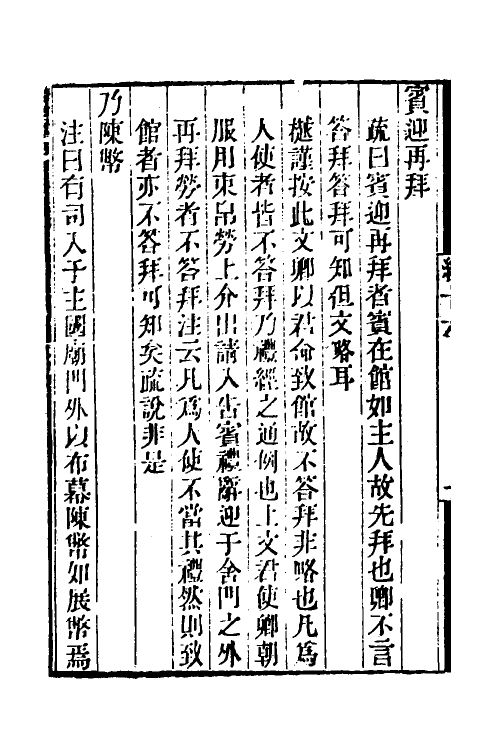 賓迎再拜
疏曰賓迎再拜者賓在館如主人故先拜也卿不言
答拜答拜可知但文略耳
樾謹按此文卿以君命致館故不答拜非略也凡爲
人使者皆不答拜乃禮經之通例也上文君使卿朝
服用束帛勞上介出請入告賓禮辭迎于舍門之外
再拜勞者不答拜注云凡爲人使不當其禮然則致
館者亦不答拜可知矣疏說非是
乃陳幣
注曰有司入于主國廟門外以布幕陳幣如展幣焉